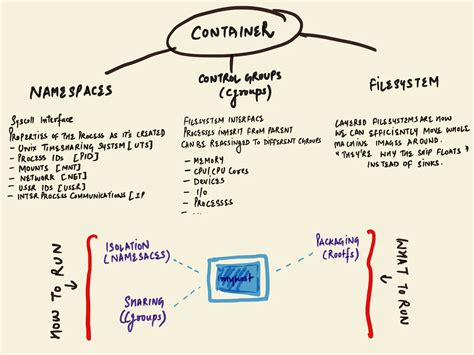 CONTAINER
NAMESPACES
Syscall Interface
PROPERTIES OF THE PROCESS AS IT'S CREATED
- UNIX TIMESHARING SYSTEM [UTS]
- PROCESS IDS [PID]
- MOUNTS [MNT]
- NETWORK [NET]
- USER IDS [USER]
- INTER PROCESS COMMUNICATIONS [IP
CONTROL GROUPS
(Cgroups)
FILESYSTEM INTERFACE
PROCESSES INHERIT FROM PARENT
CAN BE REASSIGNED TO DIFFERENT CGROUPS
- MEMORY
- CPU/CPU CORES
- DEVICES
- I/O
- PROCESSES
- ...
FILESYSTEM
LAYERED FILESYSTEMS ARE HOW
WE CAN EFFICIENTLY MOVE WHOLE
MACHINE IMAGES AROUND.
"THEY'RE WHY THE SHIP FLOATS
INSTEAD OF SINKS.
HOW TO RUN
ISOLATION
(NAMESACES)
SHARING
(Cgroups)
PACKAGING
(Rootfs)
WHAT TO RUN